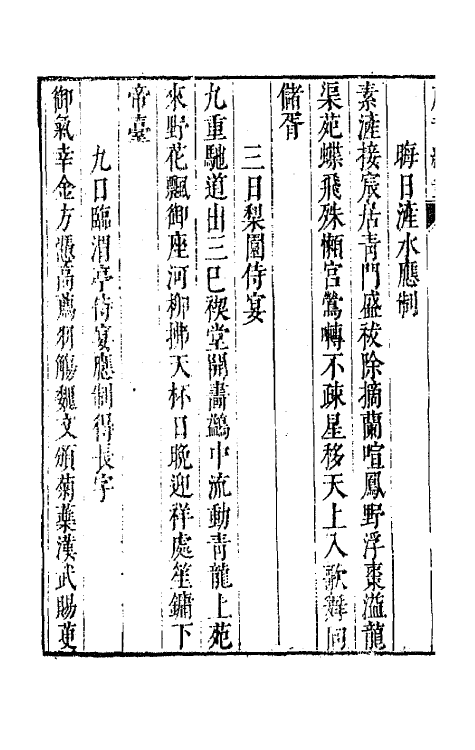 晦日滻水應制
素滻接宸居靑門盛祓除摘蘭喧鳳野浮棗溢龍
渠苑蝶飛殊懶宮鶯囀不疎星移天上入歌舞向
儲胥
三日梨園侍宴
九重馳道出三巳禊堂開畵鷁中流動靑龍上苑
來野花飄御座河柳拂天杯日晚迎祥處笙鏞下
帝臺
九日臨渭亭侍宴應制得長字
御氣幸金方憑高薦羽觴魏文頒菊蘂漢武賜萸